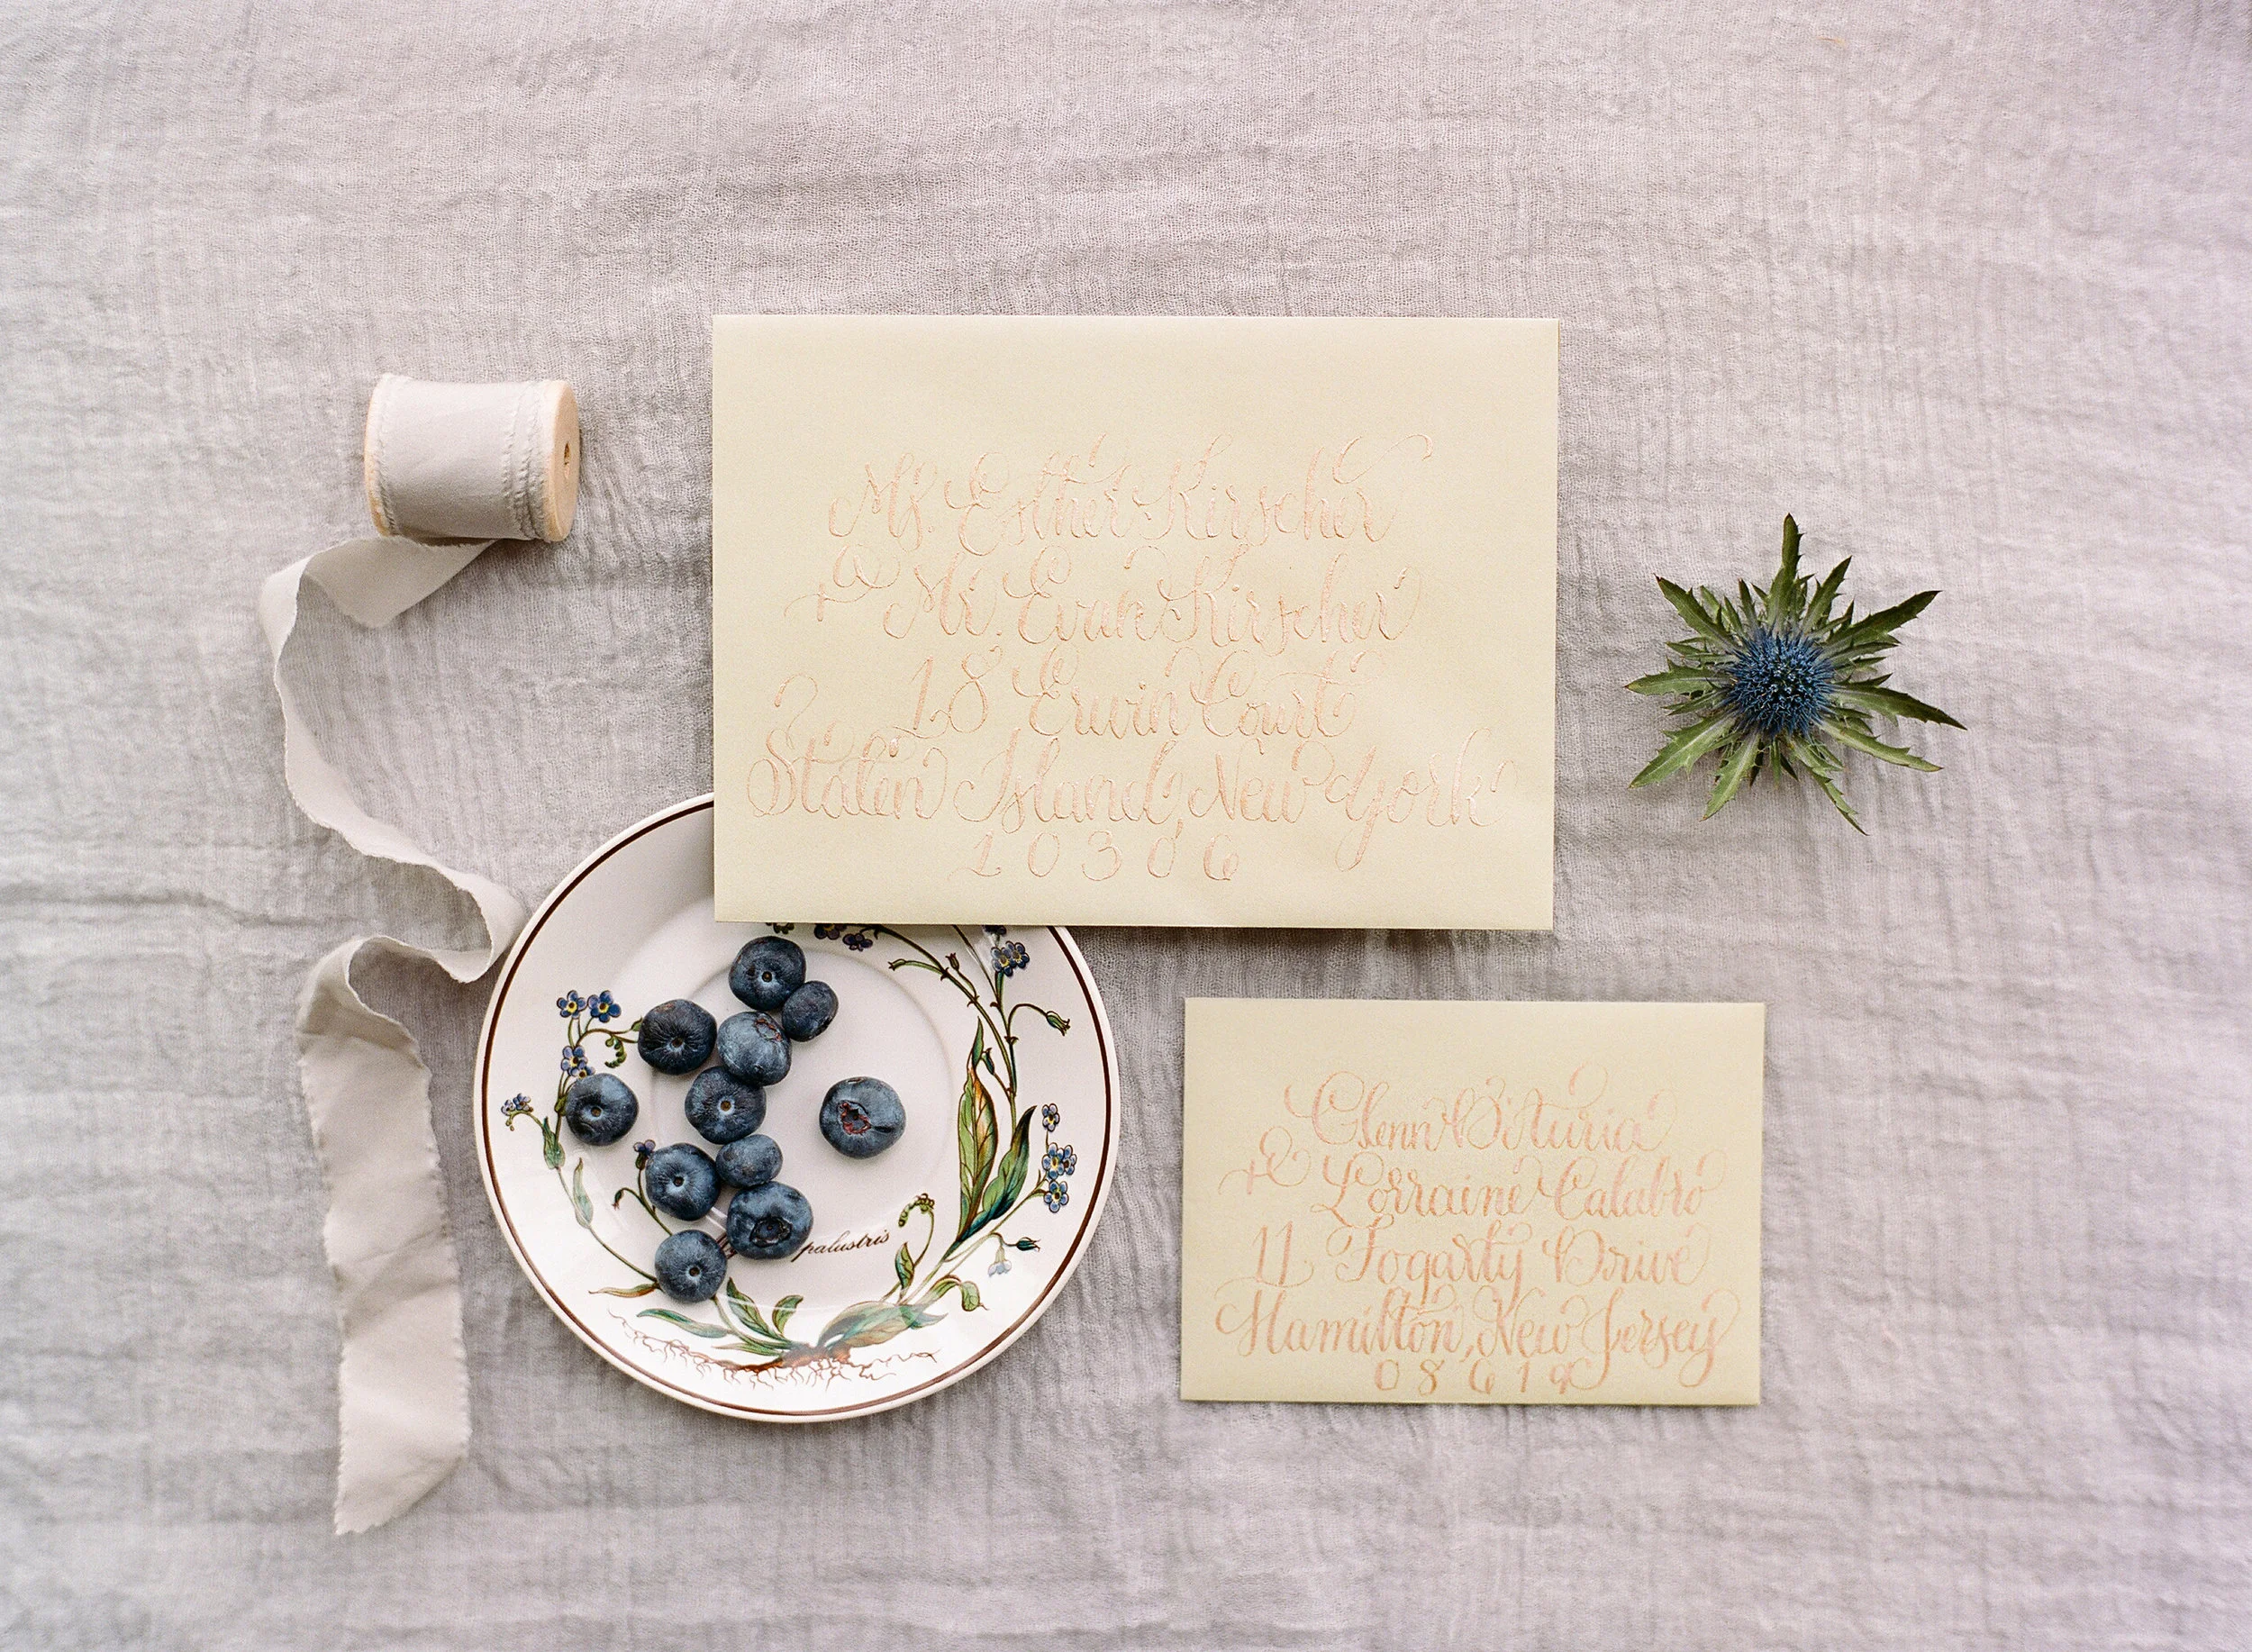 Ms. Esther Kirscher
+ Mr. Evan Kirscher
18 Erwin Court
Staten Island, New York
10306
palustris
Glenn Bituria
+ Lorraine Calabro
11 Fogarty Drive
Hamilton, New Jersey
08619